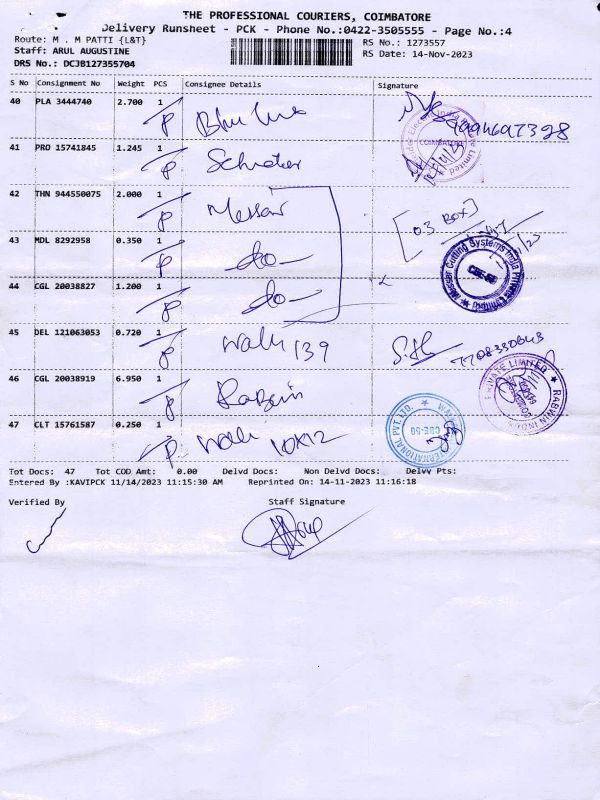 THE PROFESSIONAL COURIERS, COIMBATORE
Delivery Runsheet - PCK - Phone No.:0422-3505555 - Page No.:4
Route: M . M PATTI {L&T}
RS No.: 1273557
Staff: ARUL AUGUSTINE
RS Date: 14-Nov-2023
DRS No.: DCJB127355704
S No Consignment No Weight PCS Consignee Details Signature
40 PLA 3444740 2.700 1
41 PRO 15741845 1.245 1
COIMBATORE
42 THN 944550075 2.000 1 Messar
[03 Box]
43 MDL 8292958 0.350 1 -do-
Messer Cutting Systems India Private Limited
CBE-50
44 CGL 20038827 1.200 1 -do-
45 DEL 121063053 0.720 1 139
7708330643
46 CGL 20038919 6.950 1
PRIVATE LIMITED ★ RABWIN
47 CLT 15761587 0.250 1
INTERNATIONAL PVT. LTD.
CBE-50
Tot Docs: 47 Tot COD Amt: 0.00 Delvd Docs: Non Delvd Docs: Delvv Pts:
Entered By :KAVIPCK 11/14/2023 11:15:30 AM Reprinted On : 14-11-2023 11:16:18
Verified By Staff Signature